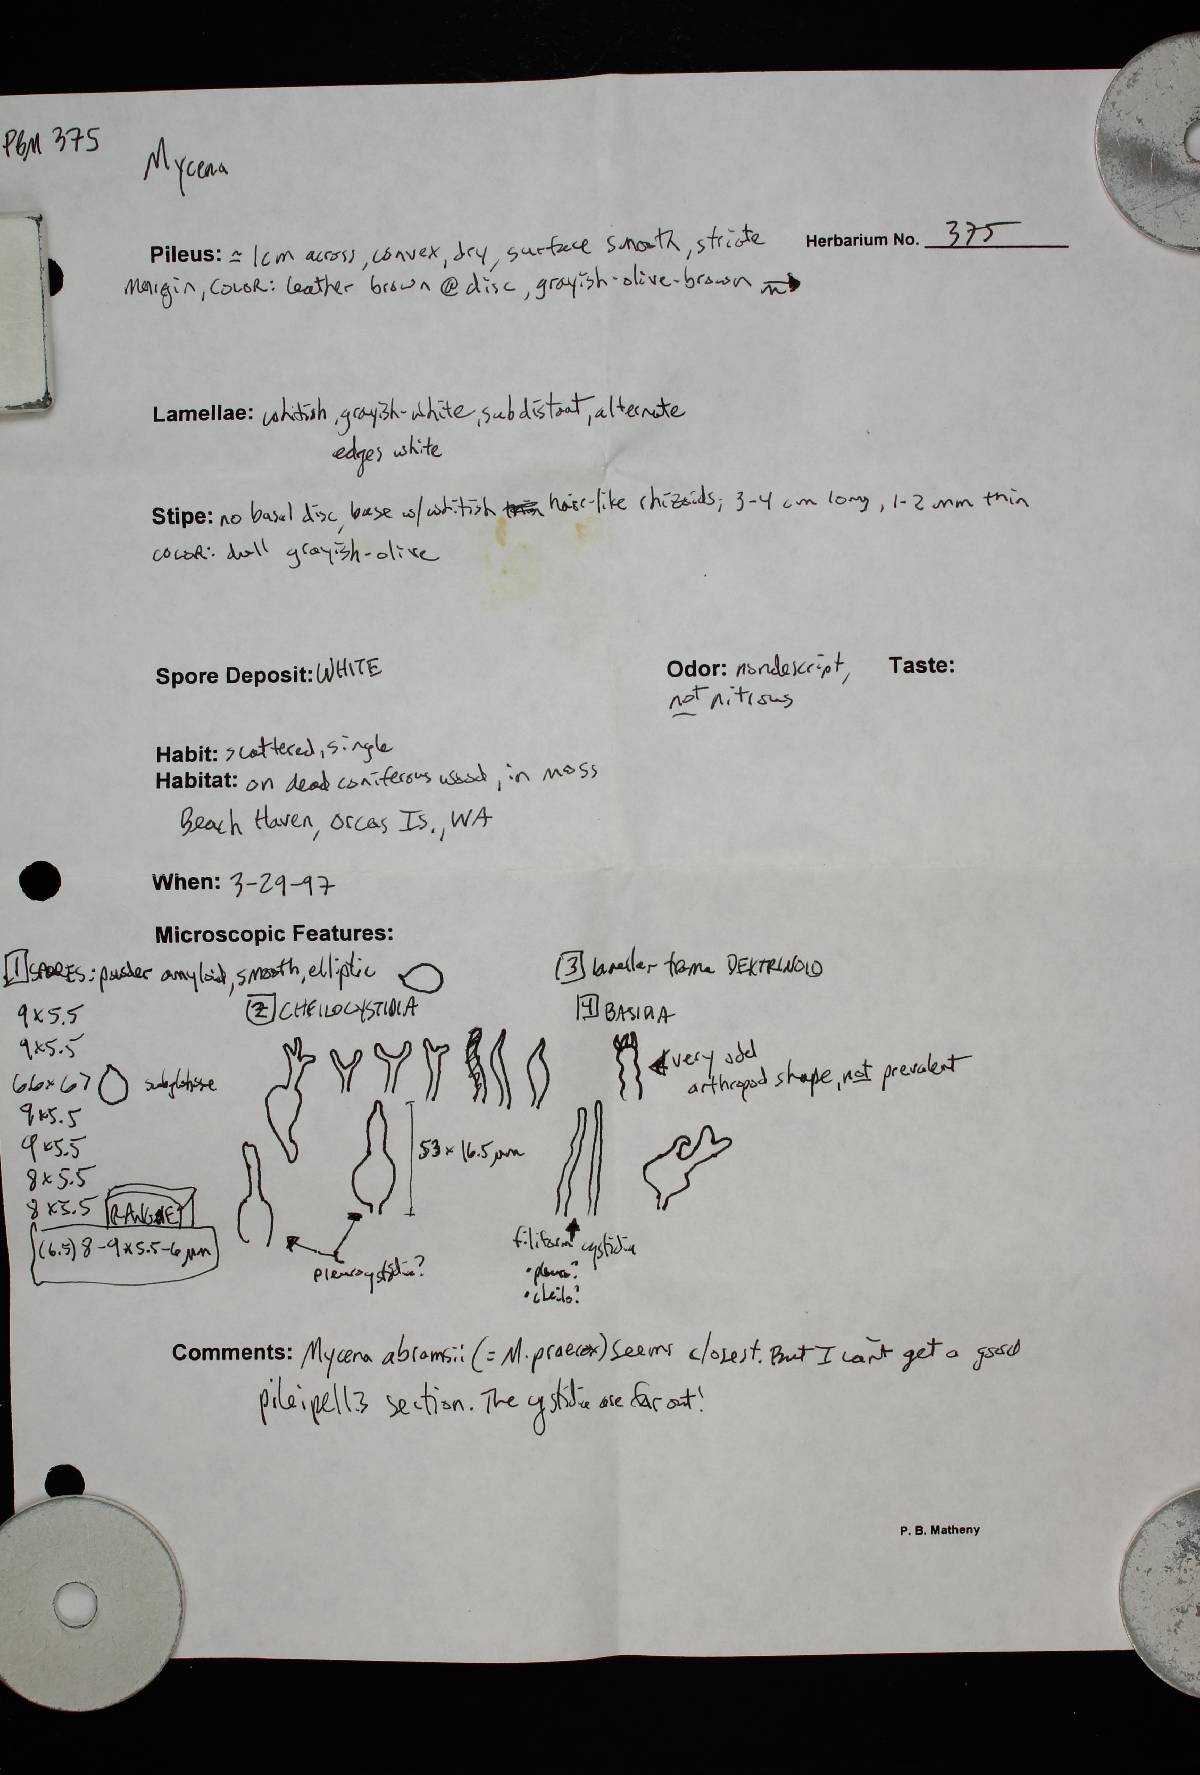 PBM 375
Mycena
Herbarium No. 375
Pileus: ≈ 1cm across, convex, dry, surface smooth, striate
margin, COLOR: leather brown @ disc, grayish-olive-brown →
Lamellae: whitish, grayish-white, subdistant, alternate
edges white
Stipe: no basal disc, base w/ whitish hair-like rhizoids; 3-4 cm long, 1-2 mm thin
COLOR: dull grayish-olive
Spore Deposit: WHITE
Odor: nondescript,
not nitrous
Taste:
Habit: scattered, single
Habitat: on dead coniferous wood, in moss
Beach Haven, Orcas Is., WA
When: 3-29-97
Microscopic Features:
1 SPORES: powder amyloid, smooth, elliptic
9 x 5.5
9 x 5.5
6.6 x 6.7 subglobose
9 x 5.5
9 x 5.5
8 x 5.5
8 x 5.5 RANGE
(6.5) 8-9 x 5.5-6 µm
2 CHEILOCYSTIDIA
53 x 16.5 µm
pleurocystidia?
3 lamellar trama DEXTRINOID
4 BASIDIA
very odd
arthropod shape, not prevalent
filiform cystidia
• pleuro?
• cheilo?
Comments: Mycena abramsii (= M. praecox) seems closest. But I can't get a good
pileipellis section. The cystidia are far out!
P. B. Matheny